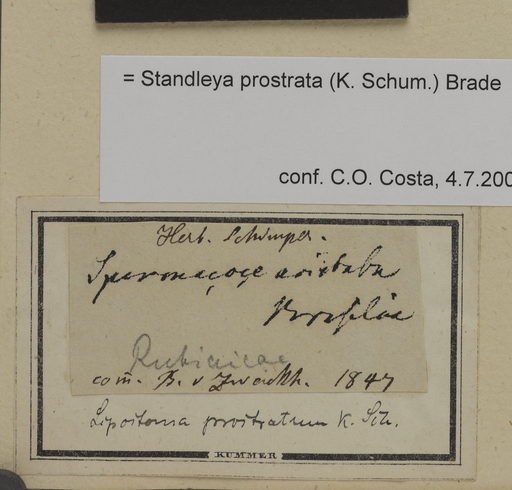 = Standleya prostrata (K. Schum.) Brade
conf. C.O. Costa, 4.7.200
Herb. Schimper.
Spermacoce aristata
Brasilia
Rubiaceae
com. B. v 1847
Lipostoma prostratum K. Sch.
KUMMER